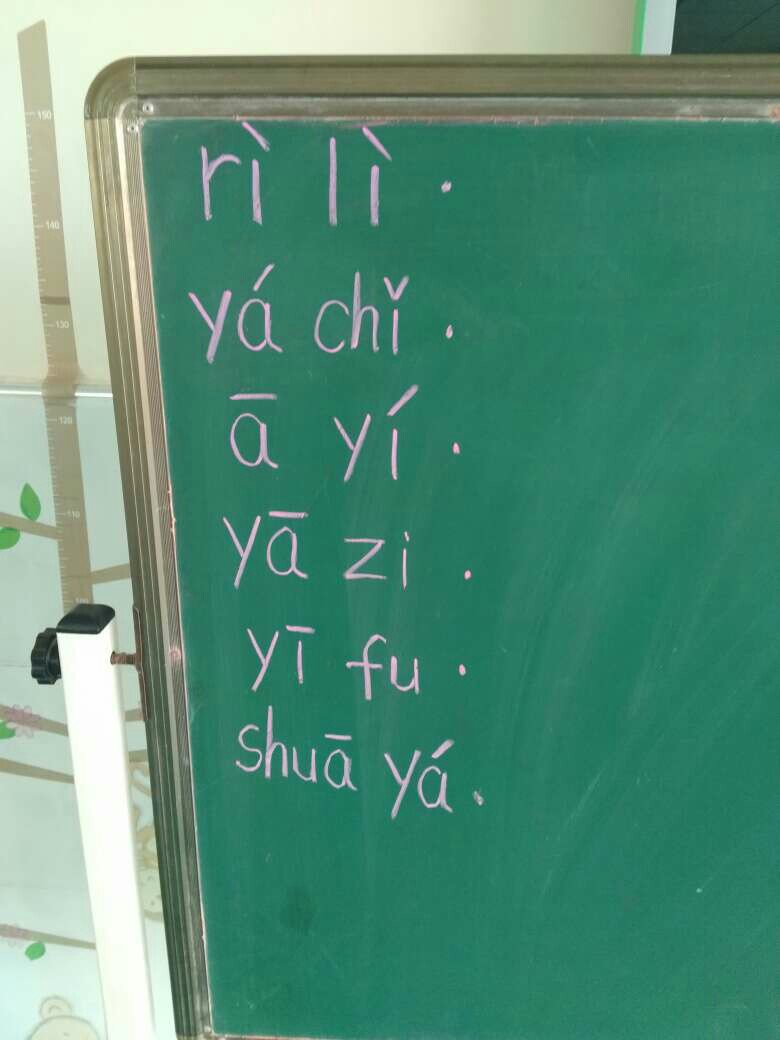 rì lì .
yá chǐ .
ā yí .
yā zi .
yī fu .
shuā yá .
150
140
130
120
110
100